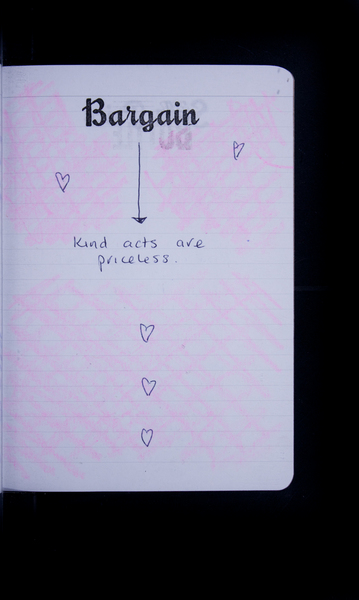 Bargain
Kind acts are
priceless.